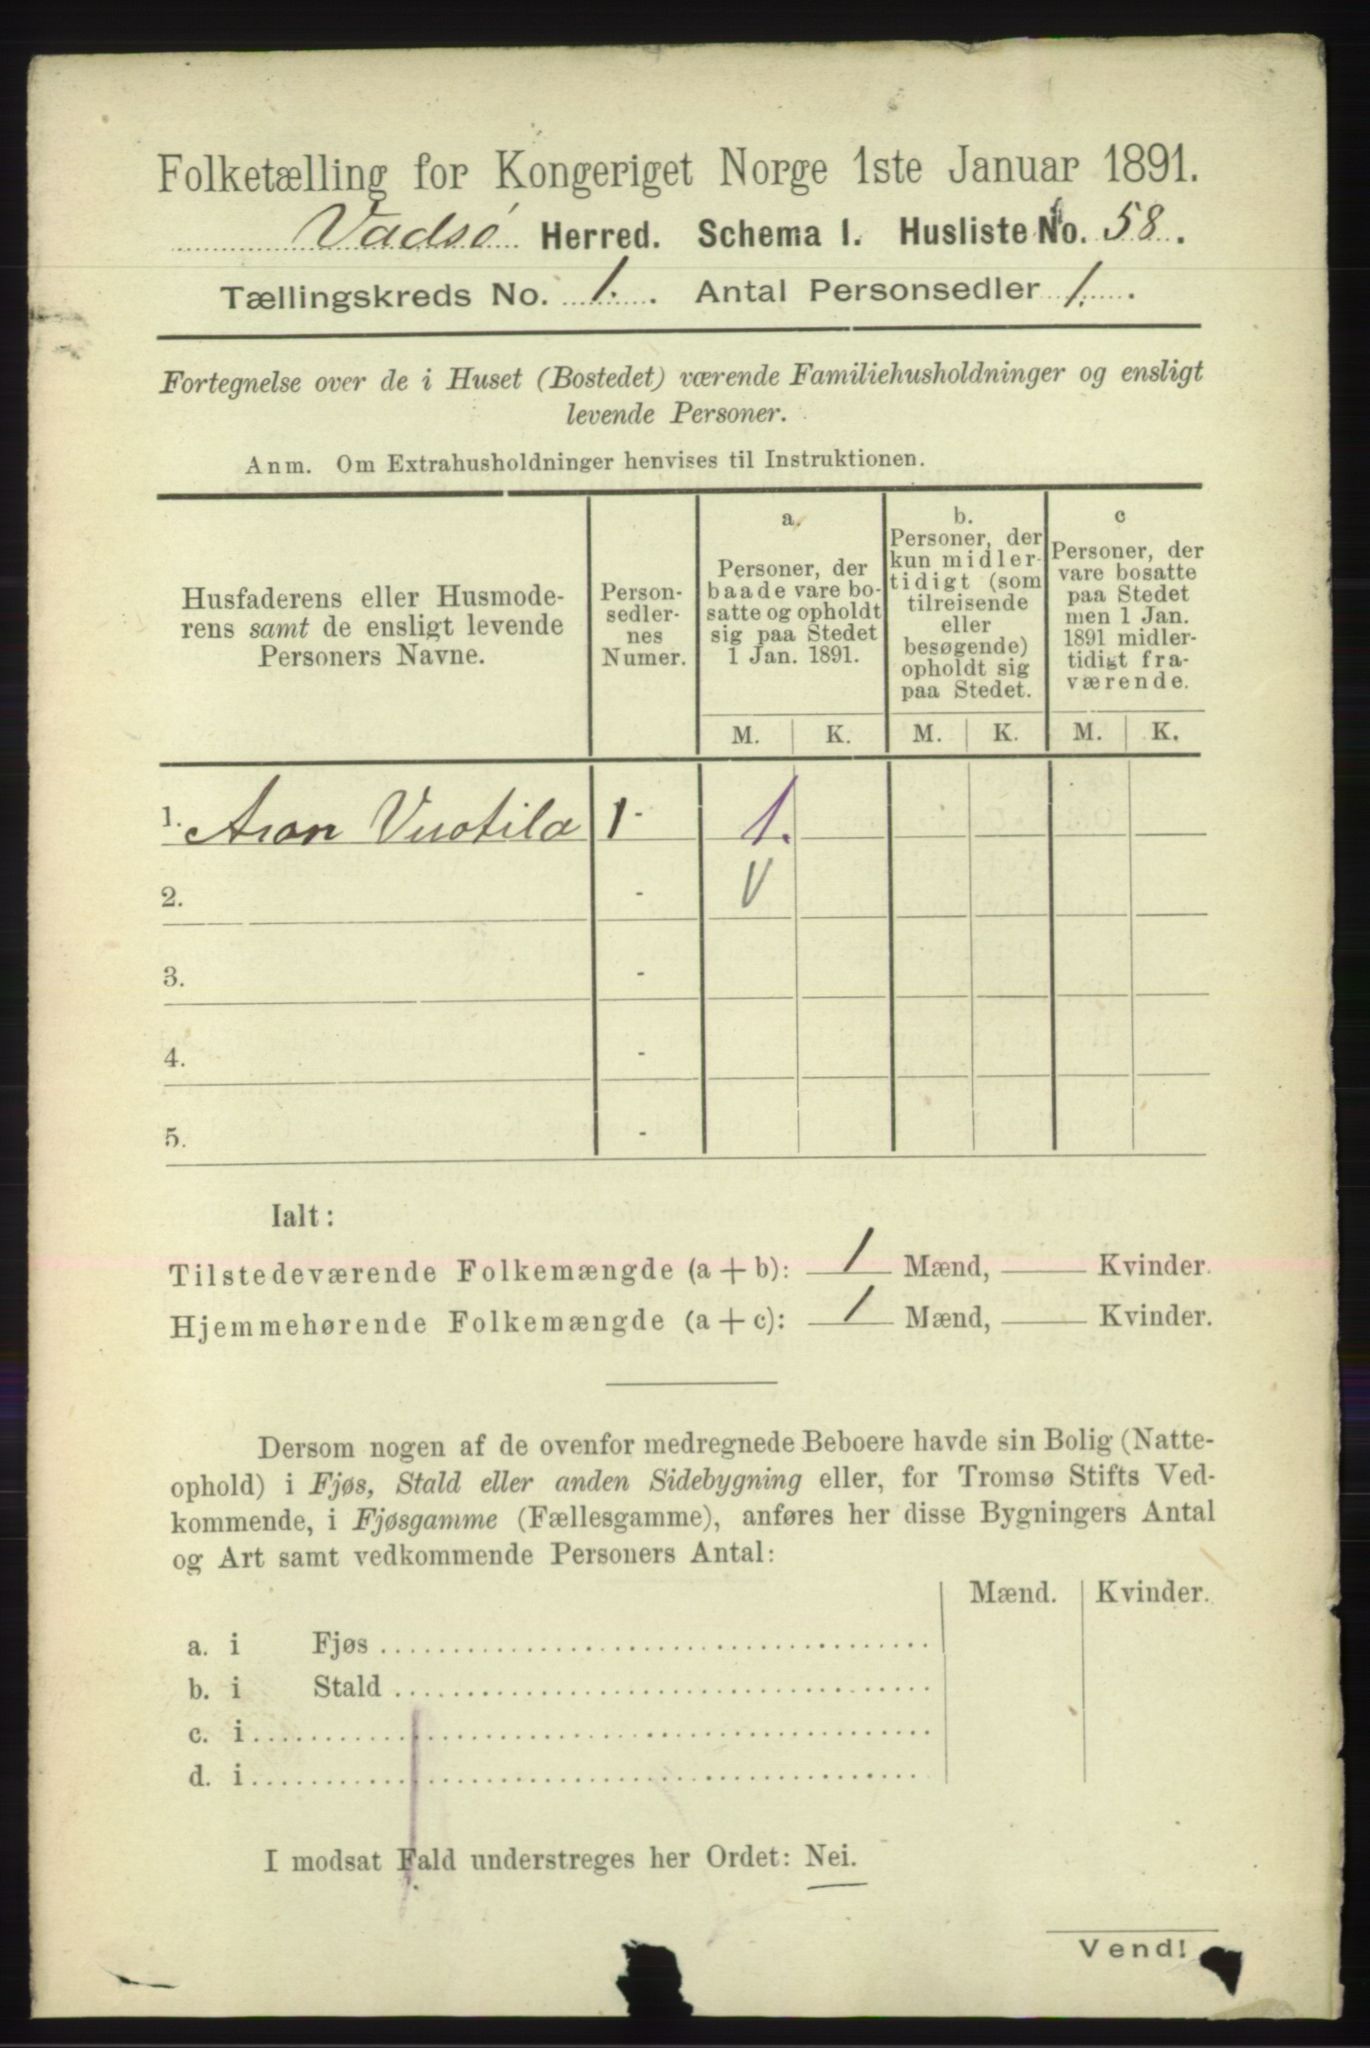 Folketælling for Kongeriget Norge 1ste Januar 1891.
Vadsø Herred. Schema 1. Husliste No. 58.
Tællingskreds No. 1. Antal Personsedler 1.
Fortegnelse over de i Huset (Bostedet) værende Familiehusholdninger og ensligt
levende Personer.
Anm. Om Extrahusholdninger henvises til Instruktionen.
Husfaderens eller Husmode-
rens samt de ensligt levende
Personers Navne.
Person-
sedler-
nes
Numer.
a.
Personer, der
baade vare bo-
satte og opholdt
sig paa Stedet
1 Jan. 1891.
b.
Personer, der
kun midler-
tidigt (som
tilreisende
eller
besøgende)
opholdt sig
paa Stedet.
c
Personer, der
vare bosatte
paa Stedet
men 1 Jan.
1891 midler-
tidigt fra-
værende.
M. K. M. K. M. K.
1. Aron Vuotila 1 - 1.
2. - V
3. -
4. -
5. -
Ialt:
Tilstedeværende Folkemængde (a + b): 1 Mænd, — Kvinder.
Hjemmehørende Folkemængde (a + c): 1 Mænd, — Kvinder.
Dersom nogen af de ovenfor medregnede Beboere havde sin Bolig (Natte-
ophold) i Fjøs, Stald eller anden Sidebygning eller, for Tromsø Stifts Ved-
kommende, i Fjøsgamme (Fællesgamme), anføres her disse Bygningers Antal
og Art samt vedkommende Personers Antal:
Mænd. Kvinder.
a. i Fjøs
b. i Stald
c. i
d. i
I modsat Fald understreges her Ordet: Nei.
Vend!